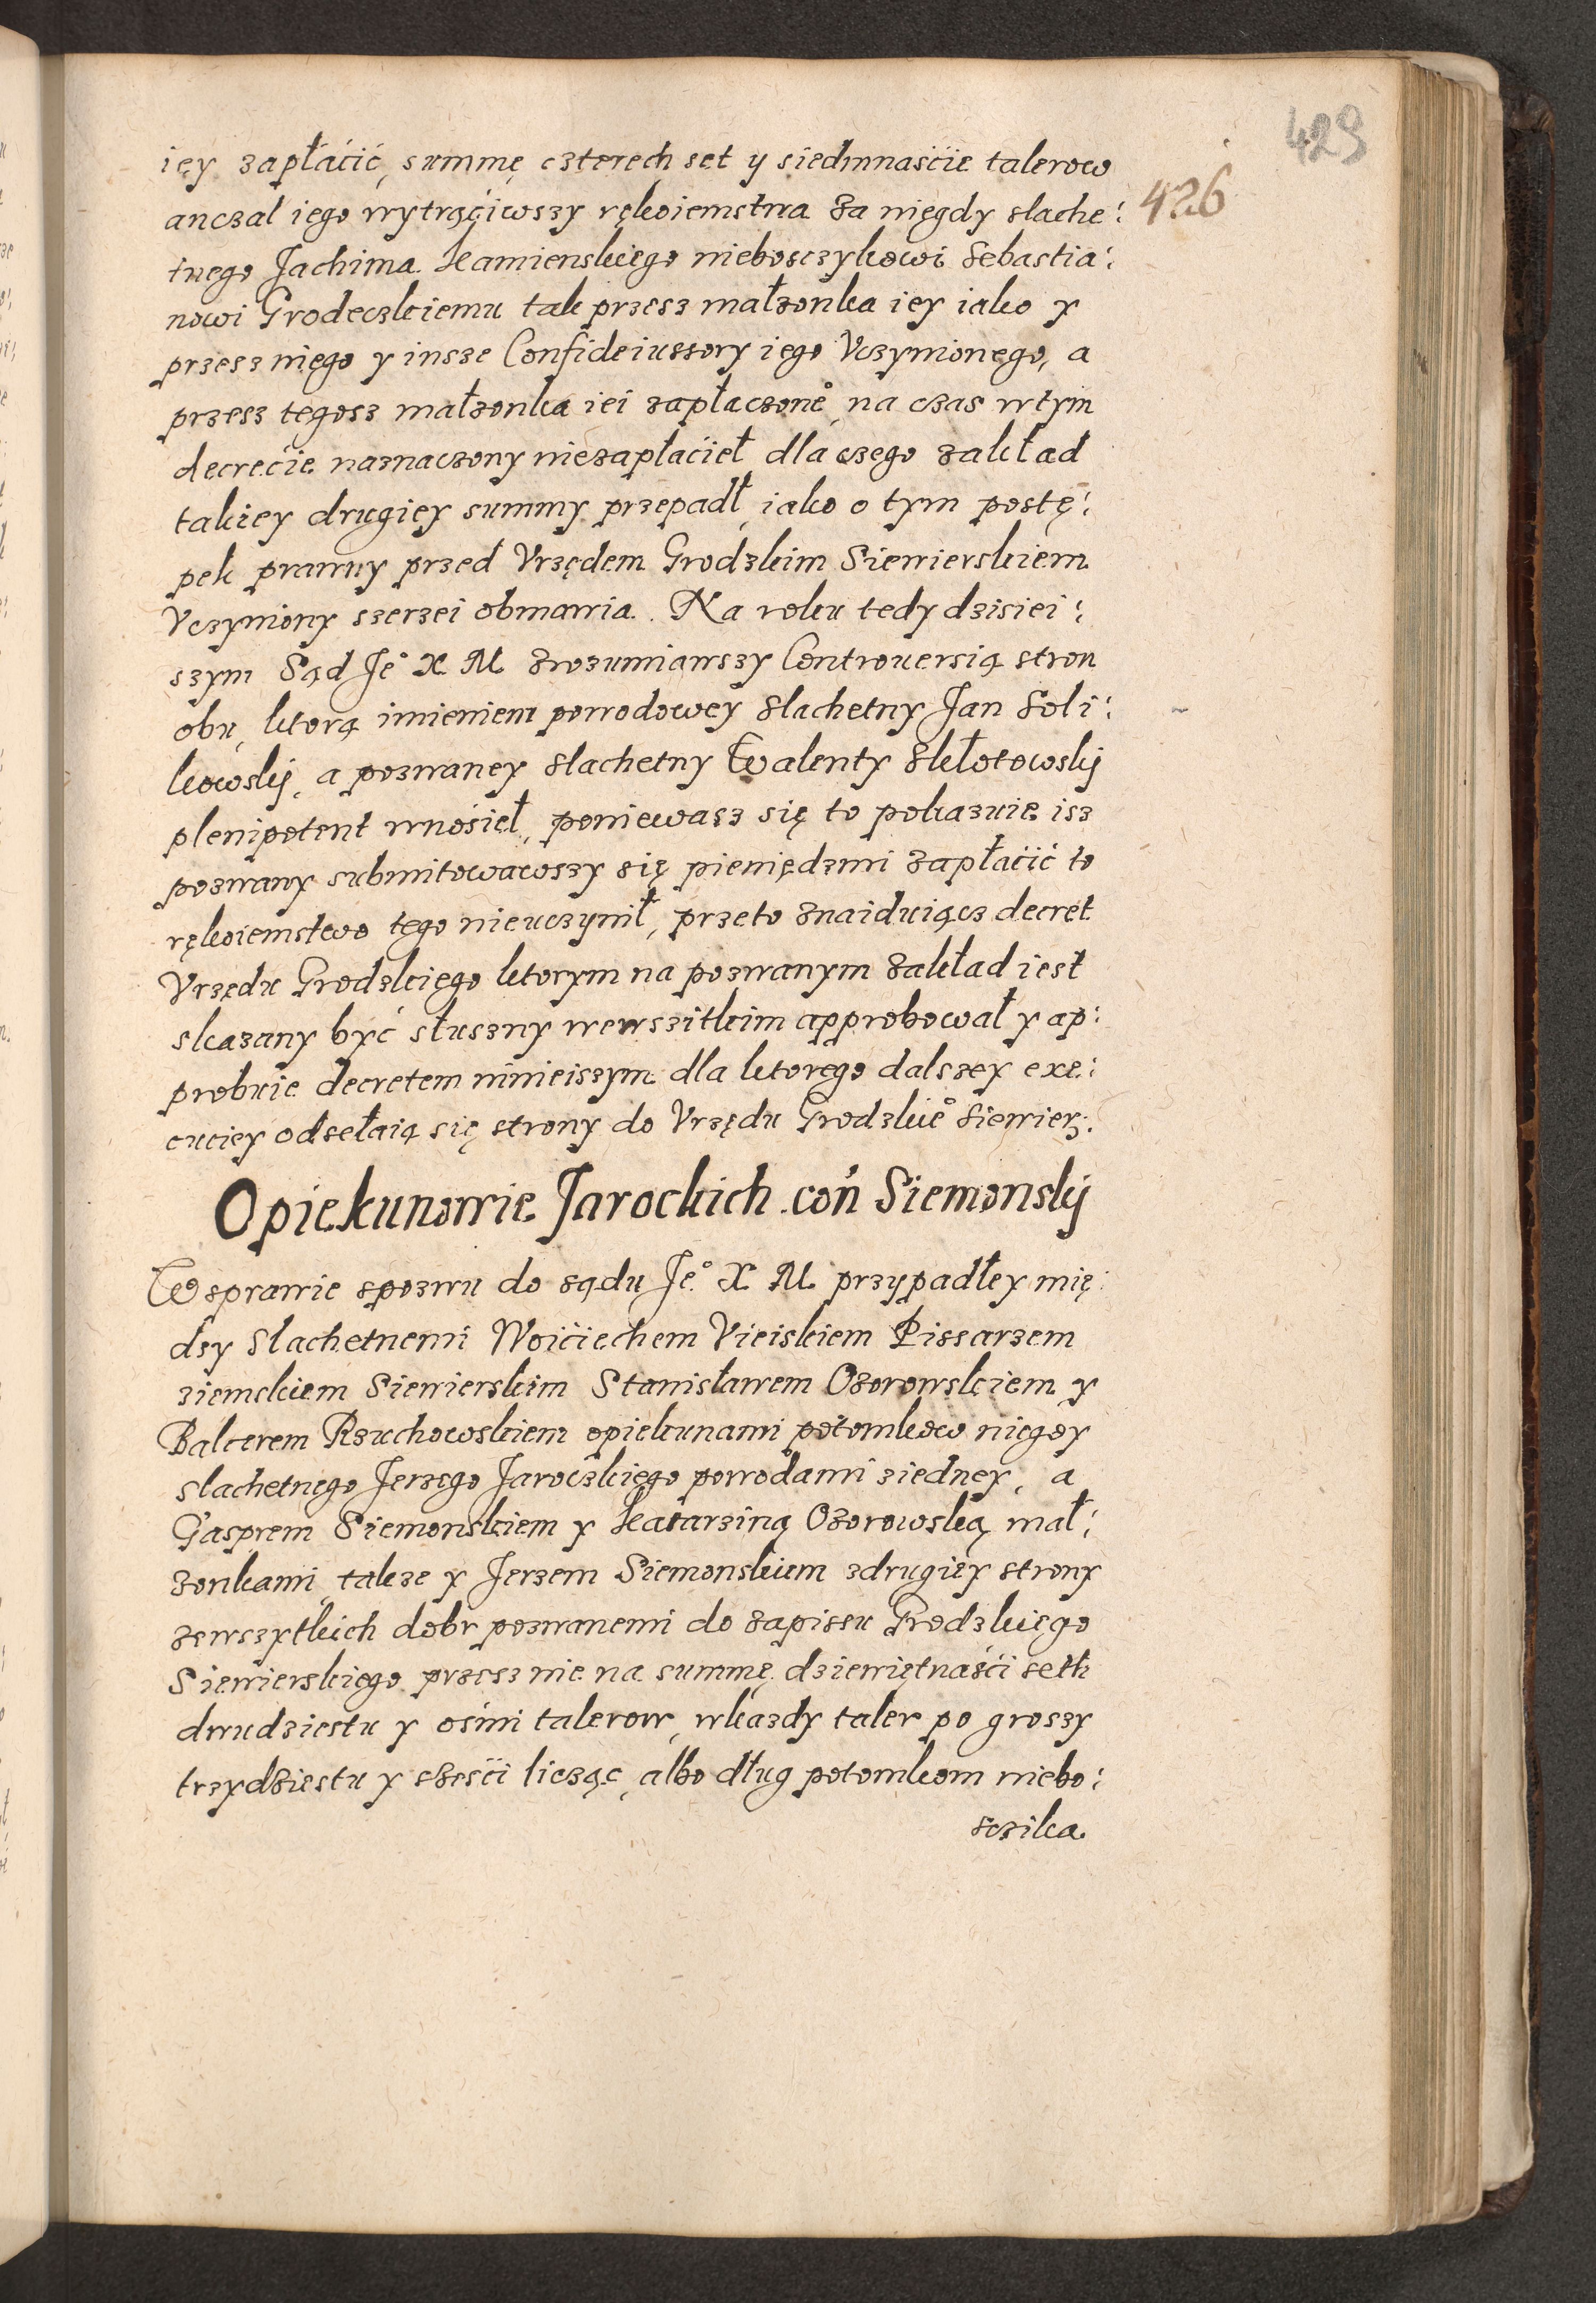 429
426
iey zapłáćić, summę czterech set y siedmnaśćie talerow
anczal iego wytrąćiwszy rękoiemstwa za niegdy slache:
tnego Jachima Kamienskiego nieboszczykowi Sebastia:
nowi Grodeczkiemu tak przesz małzonka iey iako y
przesz niego y insze Confideiussory iego Vczynionego, a
przesz tegosz małzonka iei zapłaczone°, na czas wtym
decrećie naznaczony niezapłaćieł dla czego zakład
takiey drugiey summy przepadł, iako o tym postę:
pek prawny przed Vrzędem Grodzkim Siewierskiem
Vczyniony szerzei obmawia. Na roku tedy dzisiei:
szym Sąd Je° X M zrozumiawszy Controuersią stron
obu, ktorą imieniem powodowey slachetny Jan Soli:
kowskij, a pozwaney slachetny Walenty Skłotowskij
plenipotent wnośieł, poniewasz się to pokazuie isz
pozwany submitowawszy się pieniędzmi zapłaćić to
rękoiemstwo tego nieuczynił, przeto znaiduiącz decret
Vrzędu Grodzkiego ktorym na pozwanym zakład iest
skazany być słuszny wewszitkim approbował y ap:
probuie decretem ninieiszym dla ktorego dalszey exe:
cuciey odsełaią się strony do Vrzędu Grodzkie° Siewierz:
Opiekunowie Jarockich con Siemonskij
W sprawie spozwu do sądu Je° X M przypadłey mię:
dzy Slachetnemi Woićiechem Vieiskiem Pissarzem
ziemskiem Siewierskim Stanisławem Ozorowskiem y
Balcerem Rzuchowskiem opiekunami potomkow niegdy
slachetnego Jerzego Jaroczkiego powodami ziedney, a
Gasprem Siemonskiem y Katarziną Ozorowską mał:
zonkami, takze y Jerzem Siemonskiem zdrugiey strony
zewszytkich dobr pozwanemi do zapissu Grodzkiego
Siewierskiego przesz nie na summę dziewiętnaśći seth
dwudziestu y ośmi talerow, wkazdy taler po groszy
trzydziestu y szesći licząc, albo dług potomkom niebo:
sczika.